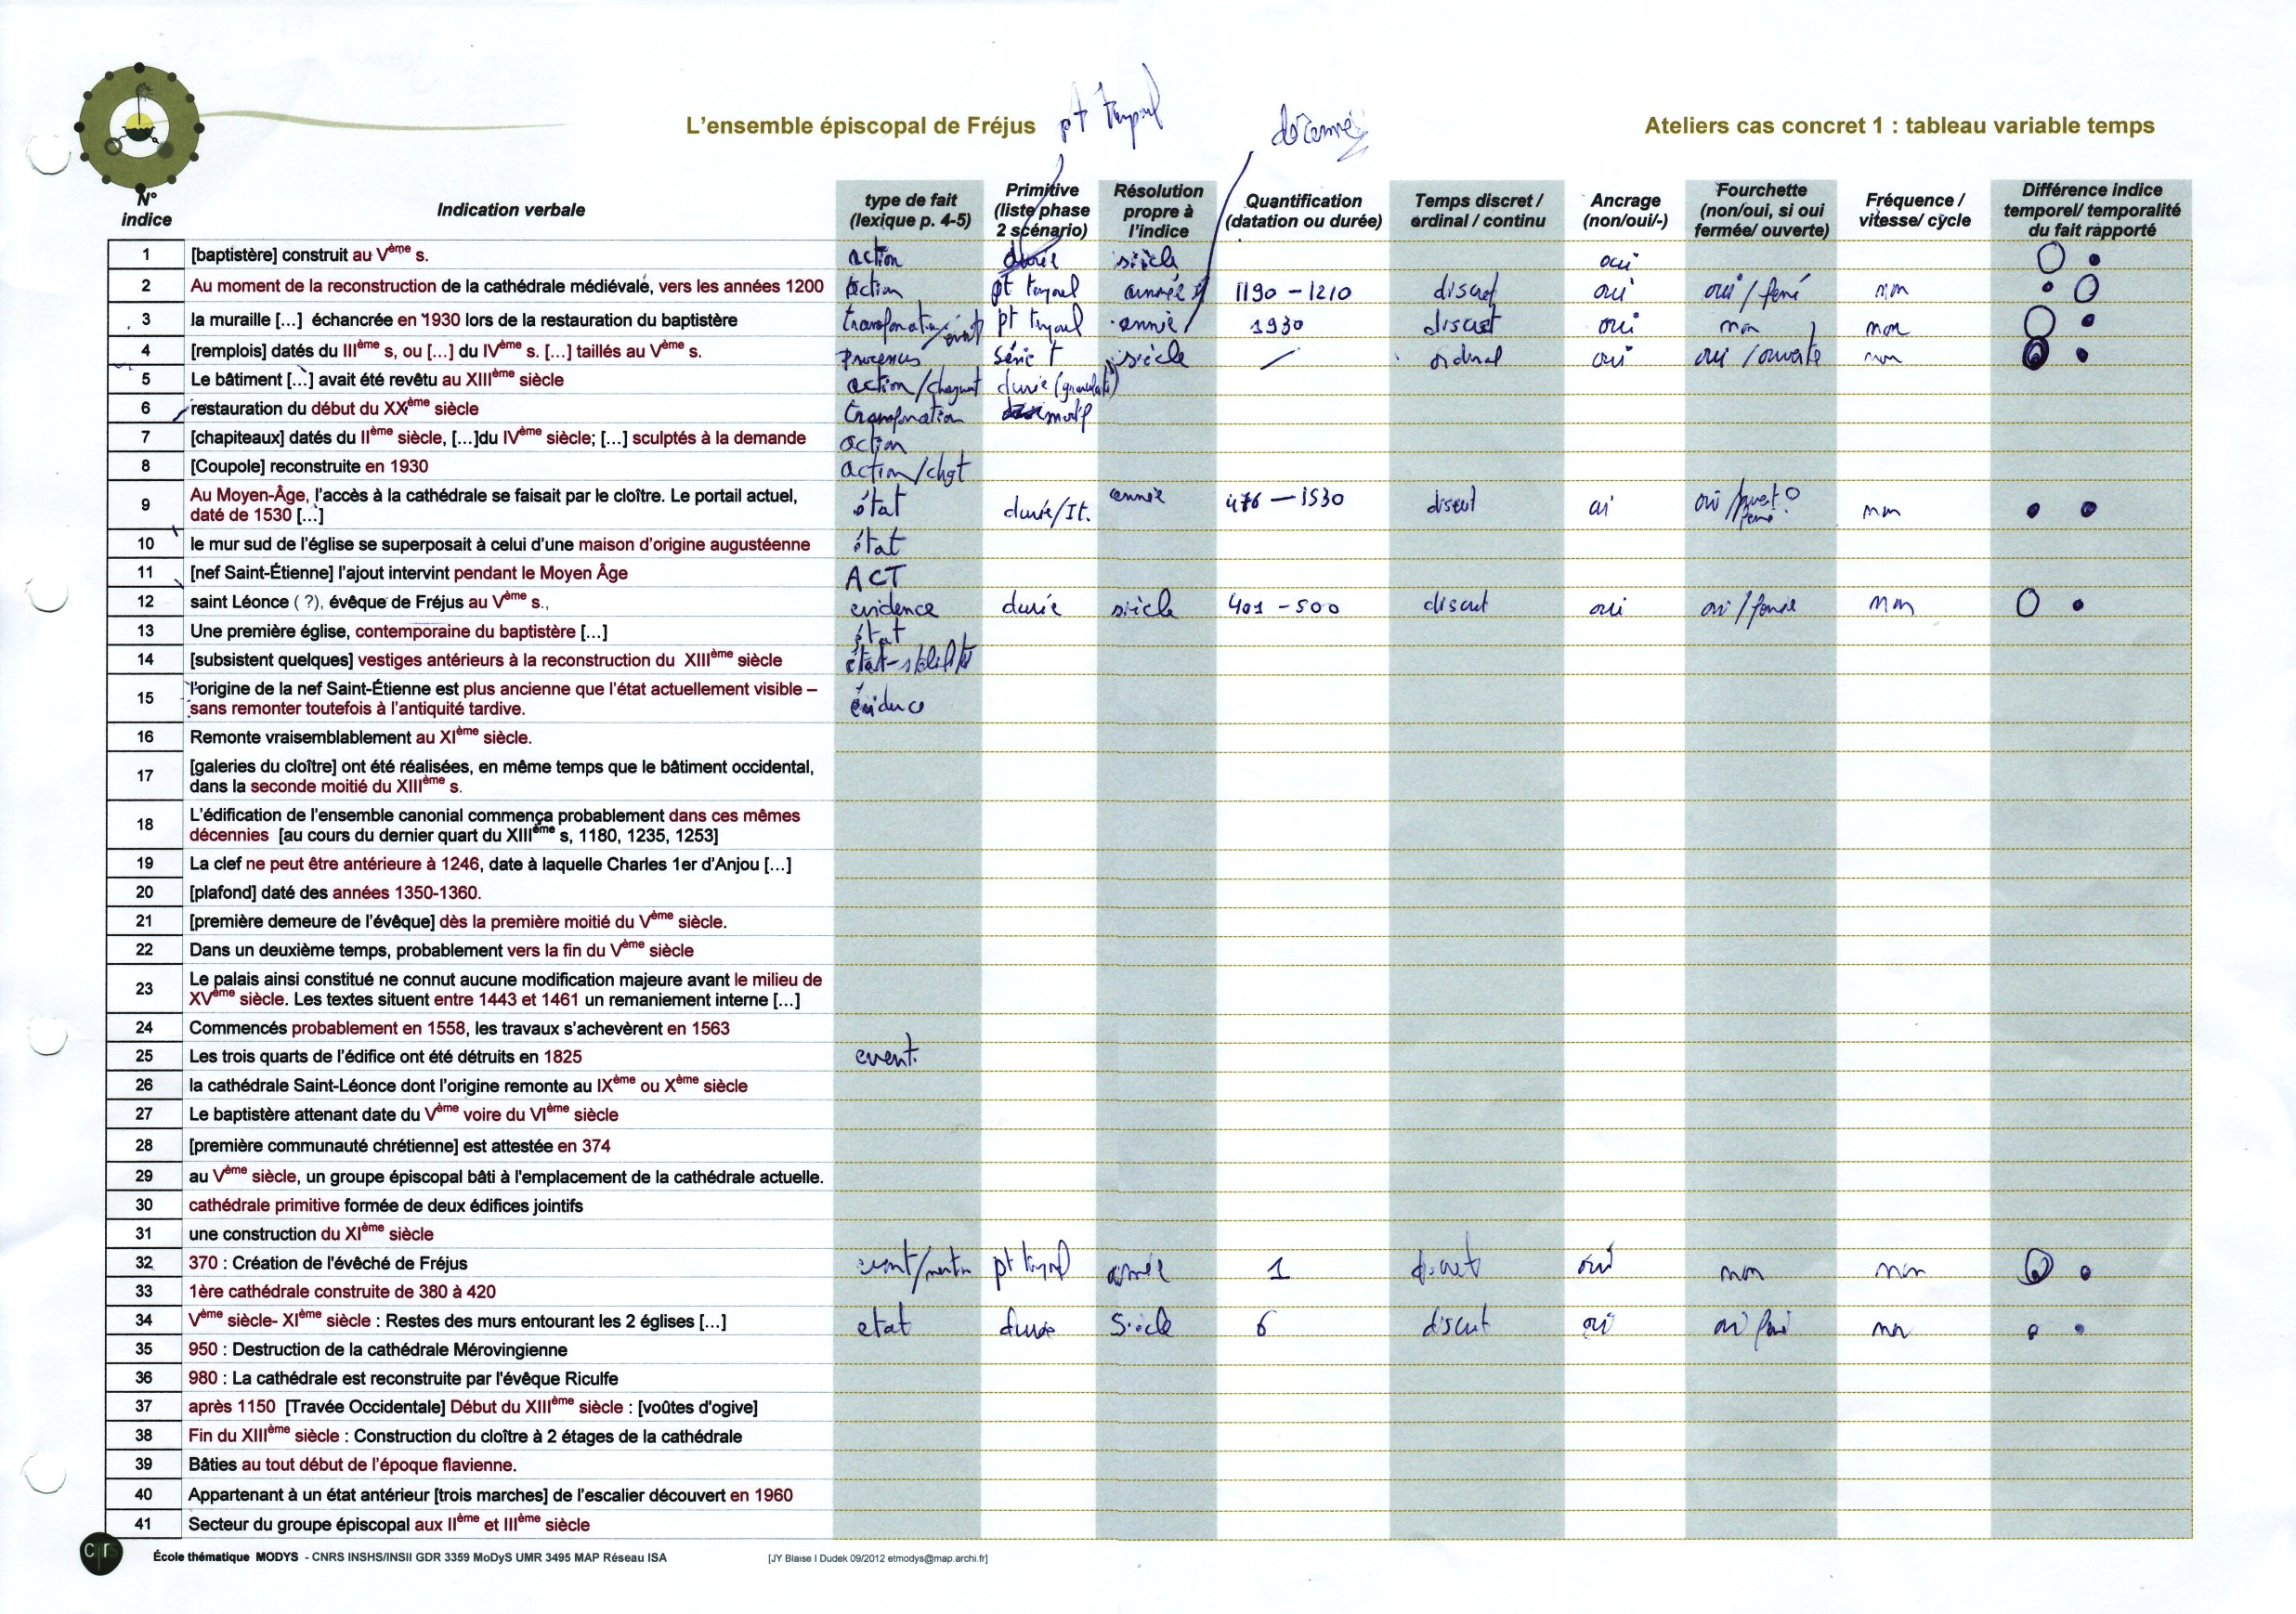 pt
L'ensemble épiscopal de Fréjus
Ateliers cas concret 1 : tableau variable temps
N° indice
Indication verbale
type de fait (lexique p. 4-5)
Primitive (liste phase 2 scénario)
Résolution propre à l'indice
Quantification (datation ou durée)
Temps discret / ordinal / continu
Ancrage (non/oui/-)
Fourchette (non/oui, si oui fermée/ ouverte)
Fréquence / vitesse/ cycle
Différence indice temporel/ temporalité du fait rapporté
1 [baptistère] construit au Vème s. action durée siècle oui
2 Au moment de la reconstruction de la cathédrale médiévale, vers les années 1200 action pt année 1190 - 1210 discret oui oui / non
3 la muraille [...] échancrée en 1930 lors de la restauration du baptistère pt année 1930 discret oui non non
4 [remplois] datés du IIIème s, ou [...] du IVème s. [...] taillés au Vème s. processus série t siècle / ordinal oui oui / ouverte non
5 Le bâtiment [...] avait été revêtu au XIIIème siècle action / durée
6 restauration du début du XXème siècle motif
7 [chapiteaux] datés du IIème siècle, [...]du IVème siècle; [...] sculptés à la demande action
8 [Coupole] reconstruite en 1930 action/chgt
9 Au Moyen-Âge, l'accès à la cathédrale se faisait par le cloître. Le portail actuel,
daté de 1530 [...] état durée/It. année 476 - 1530 discret oui oui / non
10 le mur sud de l'église se superposait à celui d'une maison d'origine augustéenne état
11 [nef Saint-Étienne] l'ajout intervint pendant le Moyen Âge ACT
12 saint Léonce ( ?), évêque de Fréjus au Vème s., evidence durée siècle 401 - 500 discret oui oui / non
13 Une première église, contemporaine du baptistère [...] état
14 [subsistent quelques] vestiges antérieurs à la reconstruction du XIIIème siècle
15 l'origine de la nef Saint-Étienne est plus ancienne que l'état actuellement visible –
sans remonter toutefois à l'antiquité tardive. évidence
16 Remonte vraisemblablement au XIème siècle.
17 [galeries du cloître] ont été réalisées, en même temps que le bâtiment occidental,
dans la seconde moitié du XIIIème s.
18 L'édification de l'ensemble canonial commença probablement dans ces mêmes
décennies [au cours du dernier quart du XIIIème s, 1180, 1235, 1253]
19 La clef ne peut être antérieure à 1246, date à laquelle Charles 1er d'Anjou [...]
20 [plafond] daté des années 1350-1360.
21 [première demeure de l'évêque] dès la première moitié du Vème siècle.
22 Dans un deuxième temps, probablement vers la fin du Vème siècle
23 Le palais ainsi constitué ne connut aucune modification majeure avant le milieu de
XVème siècle. Les textes situent entre 1443 et 1461 un remaniement interne [...]
24 Commencés probablement en 1558, les travaux s'achevèrent en 1563
25 Les trois quarts de l'édifice ont été détruits en 1825 event.
26 la cathédrale Saint-Léonce dont l'origine remonte au IXème ou Xème siècle
27 Le baptistère attenant date du Vème voire du VIème siècle
28 [première communauté chrétienne] est attestée en 374
29 au Vème siècle, un groupe épiscopal bâti à l'emplacement de la cathédrale actuelle.
30 cathédrale primitive formée de deux édifices jointifs
31 une construction du XIème siècle
32 370 : Création de l'évêché de Fréjus pt année 1 discret oui non non
33 1ère cathédrale construite de 380 à 420
34 Vème siècle- XIème siècle : Restes des murs entourant les 2 églises [...] etat durée Siècle 6 discret oui oui non
35 950 : Destruction de la cathédrale Mérovingienne
36 980 : La cathédrale est reconstruite par l'évêque Riculfe
37 après 1150 [Travée Occidentale] Début du XIIIème siècle : [voûtes d'ogive]
38 Fin du XIIIème siècle : Construction du cloître à 2 étages de la cathédrale
39 Bâties au tout début de l'époque flavienne.
40 Appartenant à un état antérieur [trois marches] de l'escalier découvert en 1960
41 Secteur du groupe épiscopal aux IIème et IIIème siècle
École thématique MODYS - CNRS INSHS/INSII GDR 3359 MoDyS UMR 3495 MAP Réseau ISA
[JY Blaise I Dudek 09/2012 etmodys@map.archi.fr]